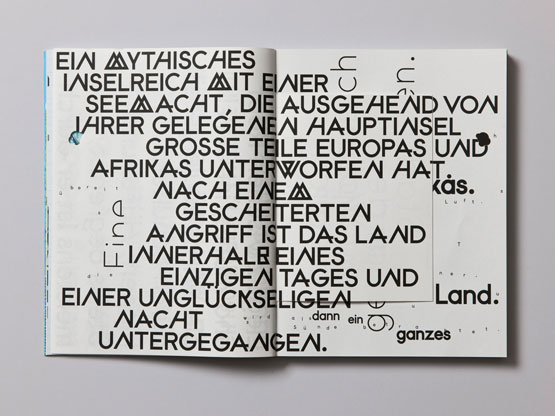 EIN MYTHISCHES
INSELREICH MIT EINER
SEEMACHT, DIE AUSGEHEND VON
IHRER GELEGENEN HAUPTINSEL
GROSSE TEILE EUROPAS UND
AFRIKAS UNTERWORFEN HAT.
NACH EINEM
GESCHEITERTEN
ANGRIFF IST DAS LAND
INNERHALB EINES
EINZIGEN TAGES UND
EINER UNGLÜCKSELIGEN
NACHT
UNTERGEGANGEN.
ch
en.
Eine
übereit
kas.
Luft.
Land.
dann ein
ganzes